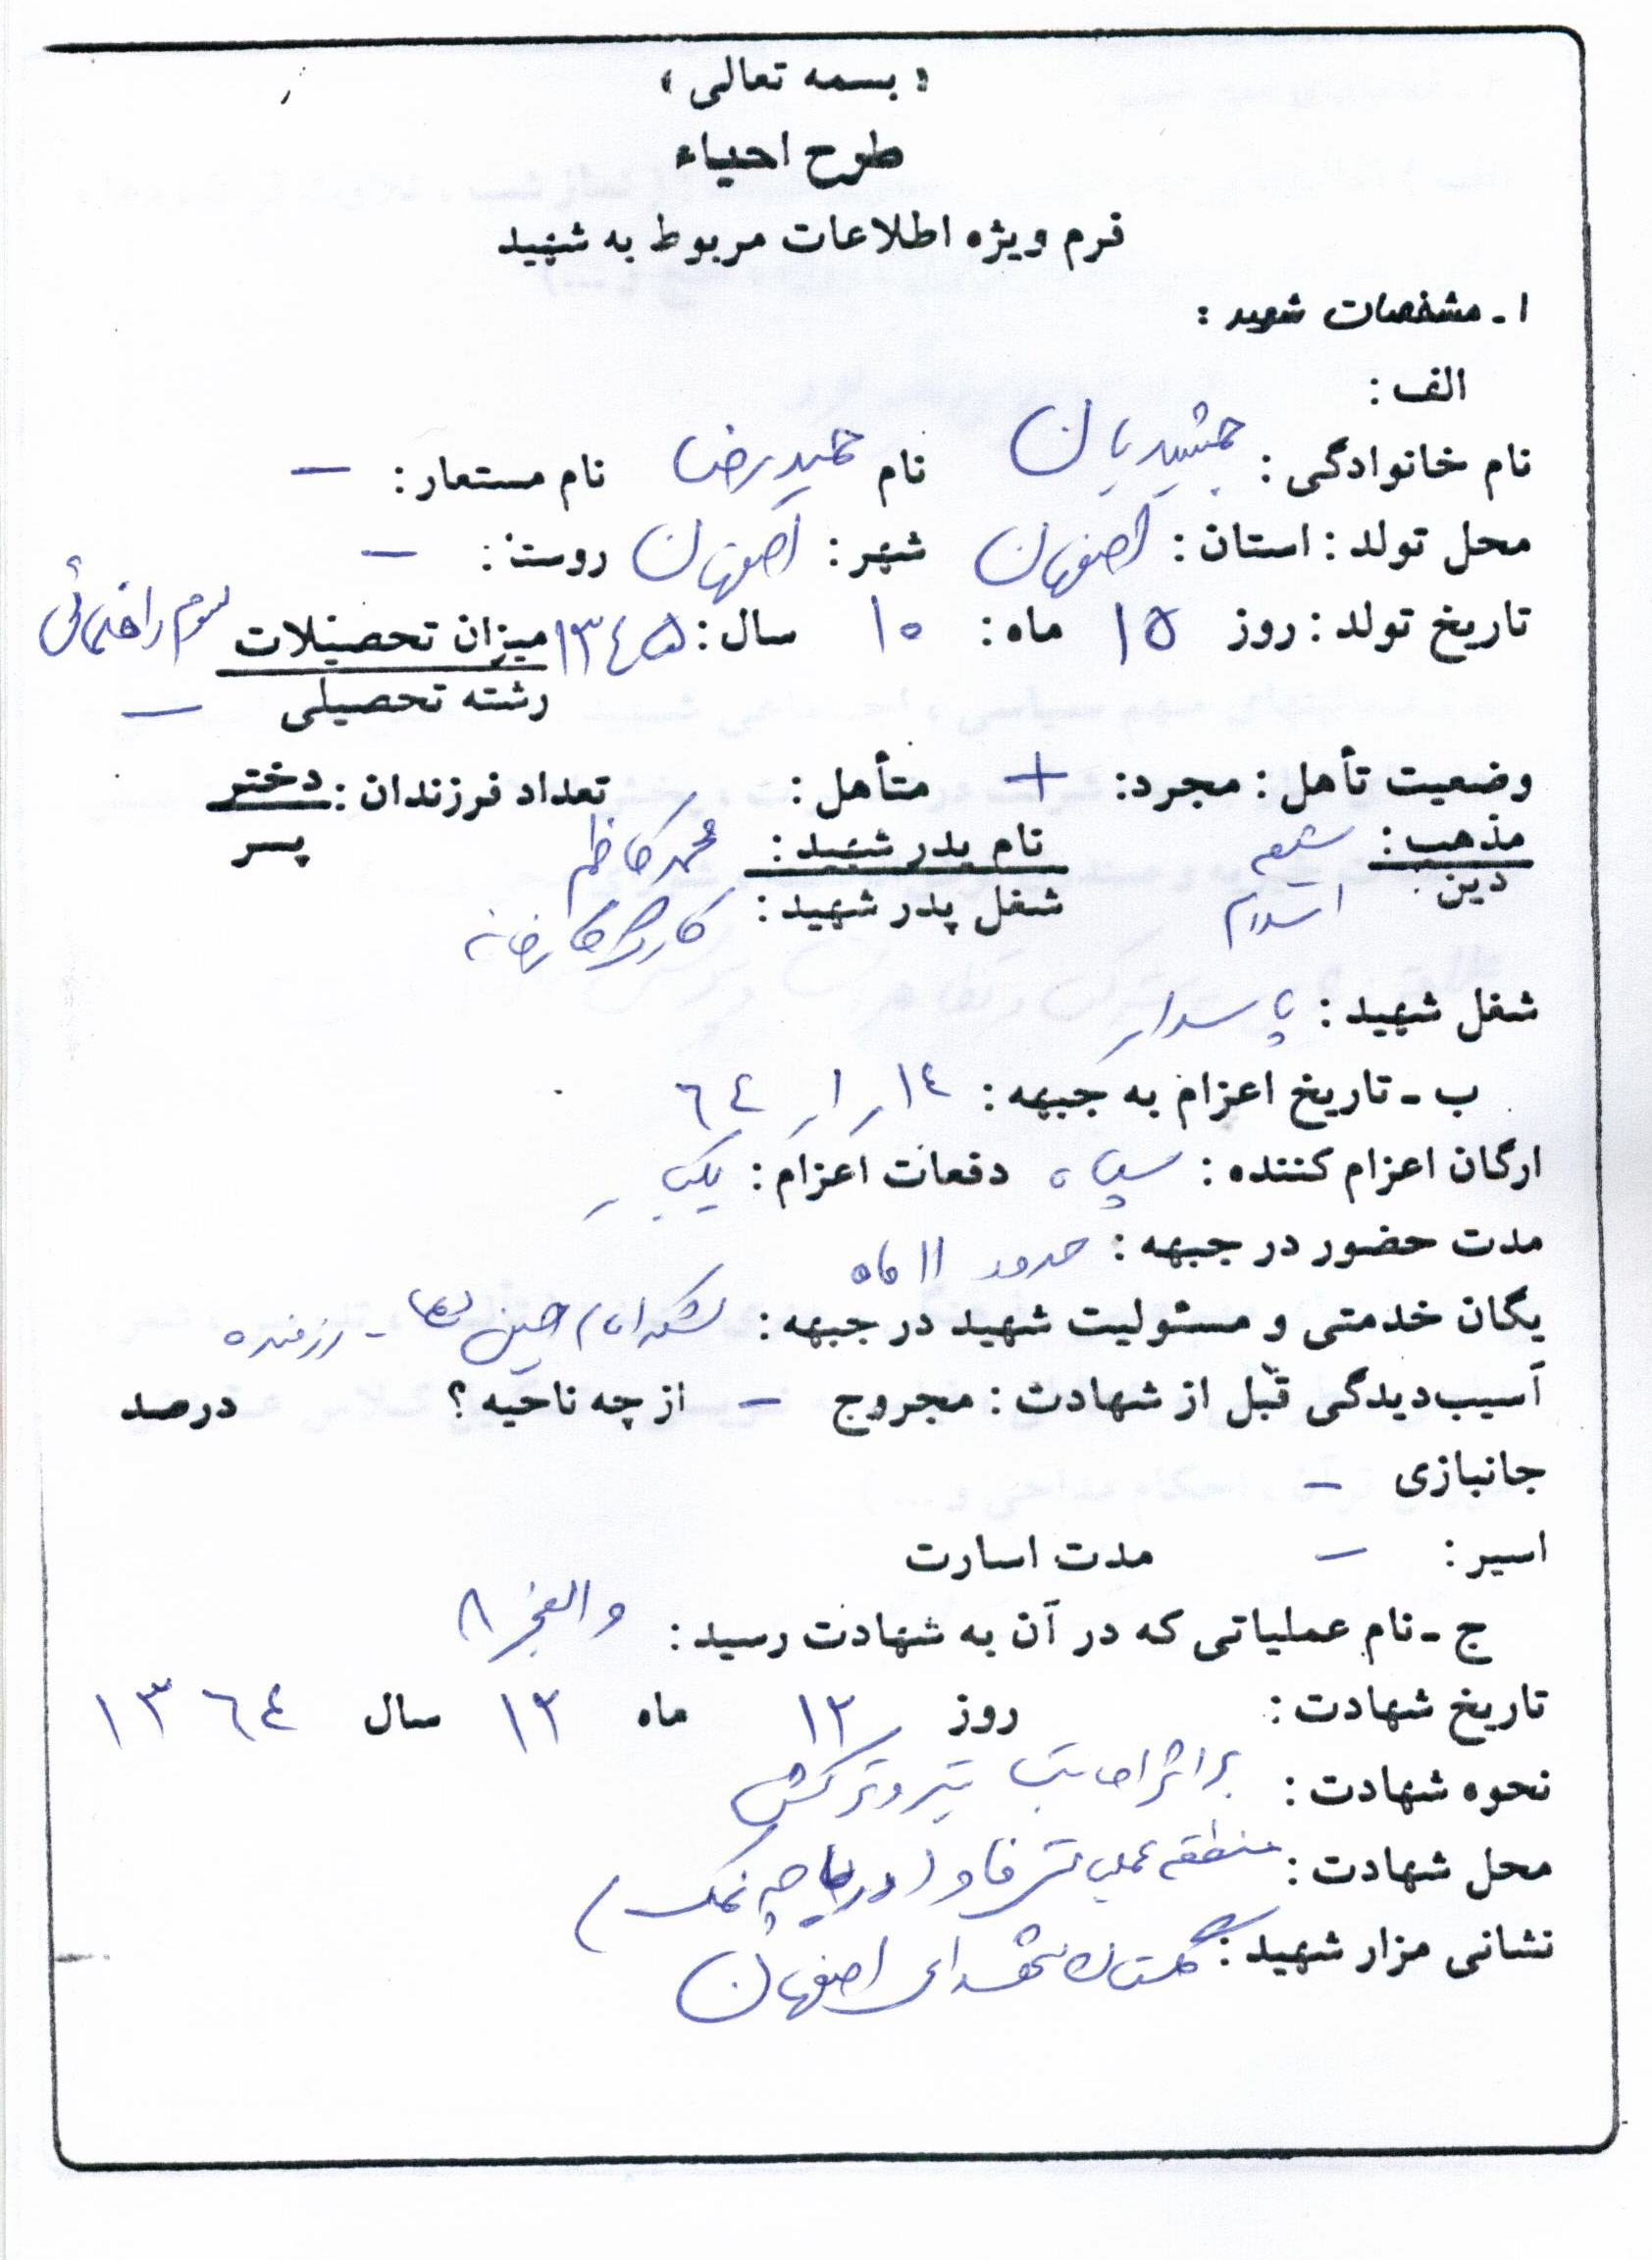 « بسمه تعالی »
طرح احیاء
فرم ویژه اطلاعات مربوط به شهید
۱ـ مشخصات شهید :
الف :
نام خانوادگی : جمشیدیان نام حمیدرضا نام مستعار : –
محل تولد : استان : اصفهان شهر : اصفهان روستا : –
تاریخ تولد : روز ۱۵ ماه : ۱۰ سال : ۱۳٤۵ میزان تحصیلات سوم راهنمائی
رشته تحصیلی –
وضعیت تأهل : مجرد : + متأهل : تعداد فرزندان : دختر
پسر
مذهب : شیعه نام پدر شهید : محمد کاظم
دین : اسلام شغل پدر شهید : کارگر کارخانه
شغل شهید : پاسدار
ب ـ تاریخ اعزام به جبهه : ۱٤ ر ۱ ر ٦٤
ارگان اعزام کننده : سپاه دفعات اعزام : یکبار
مدت حضور در جبهه : حدود ۱۱ ماه
یگان خدمتی و مسئولیت شهید در جبهه : لشکر امام حسین (ع) - رزمنده
آسیب‌دیدگی قبل از شهادت : مجروح – از چه ناحیه ؟ درصد
جانبازی –
اسیر : – مدت اسارت
ج ـ نام عملیاتی که در آن به شهادت رسید : والفجر ۸
تاریخ شهادت : روز ۱۲ ماه ۱۲ سال ۱۳٦٤
نحوه شهادت : بر اثر اصابت تیر و ترکش
محل شهادت : منطقه عملیاتی فاو (دریاچه نمک)
نشانی مزار شهید : گلستان شهدای اصفهان